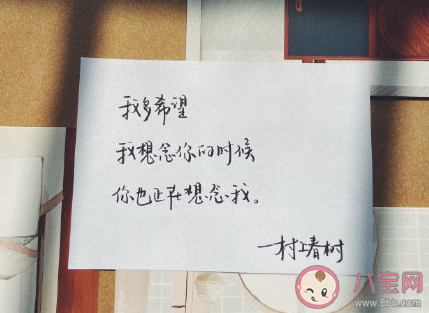 我多希望
我想念你的时候
你也正在想念我。
—村上春树
八宝网
www.8bb.com